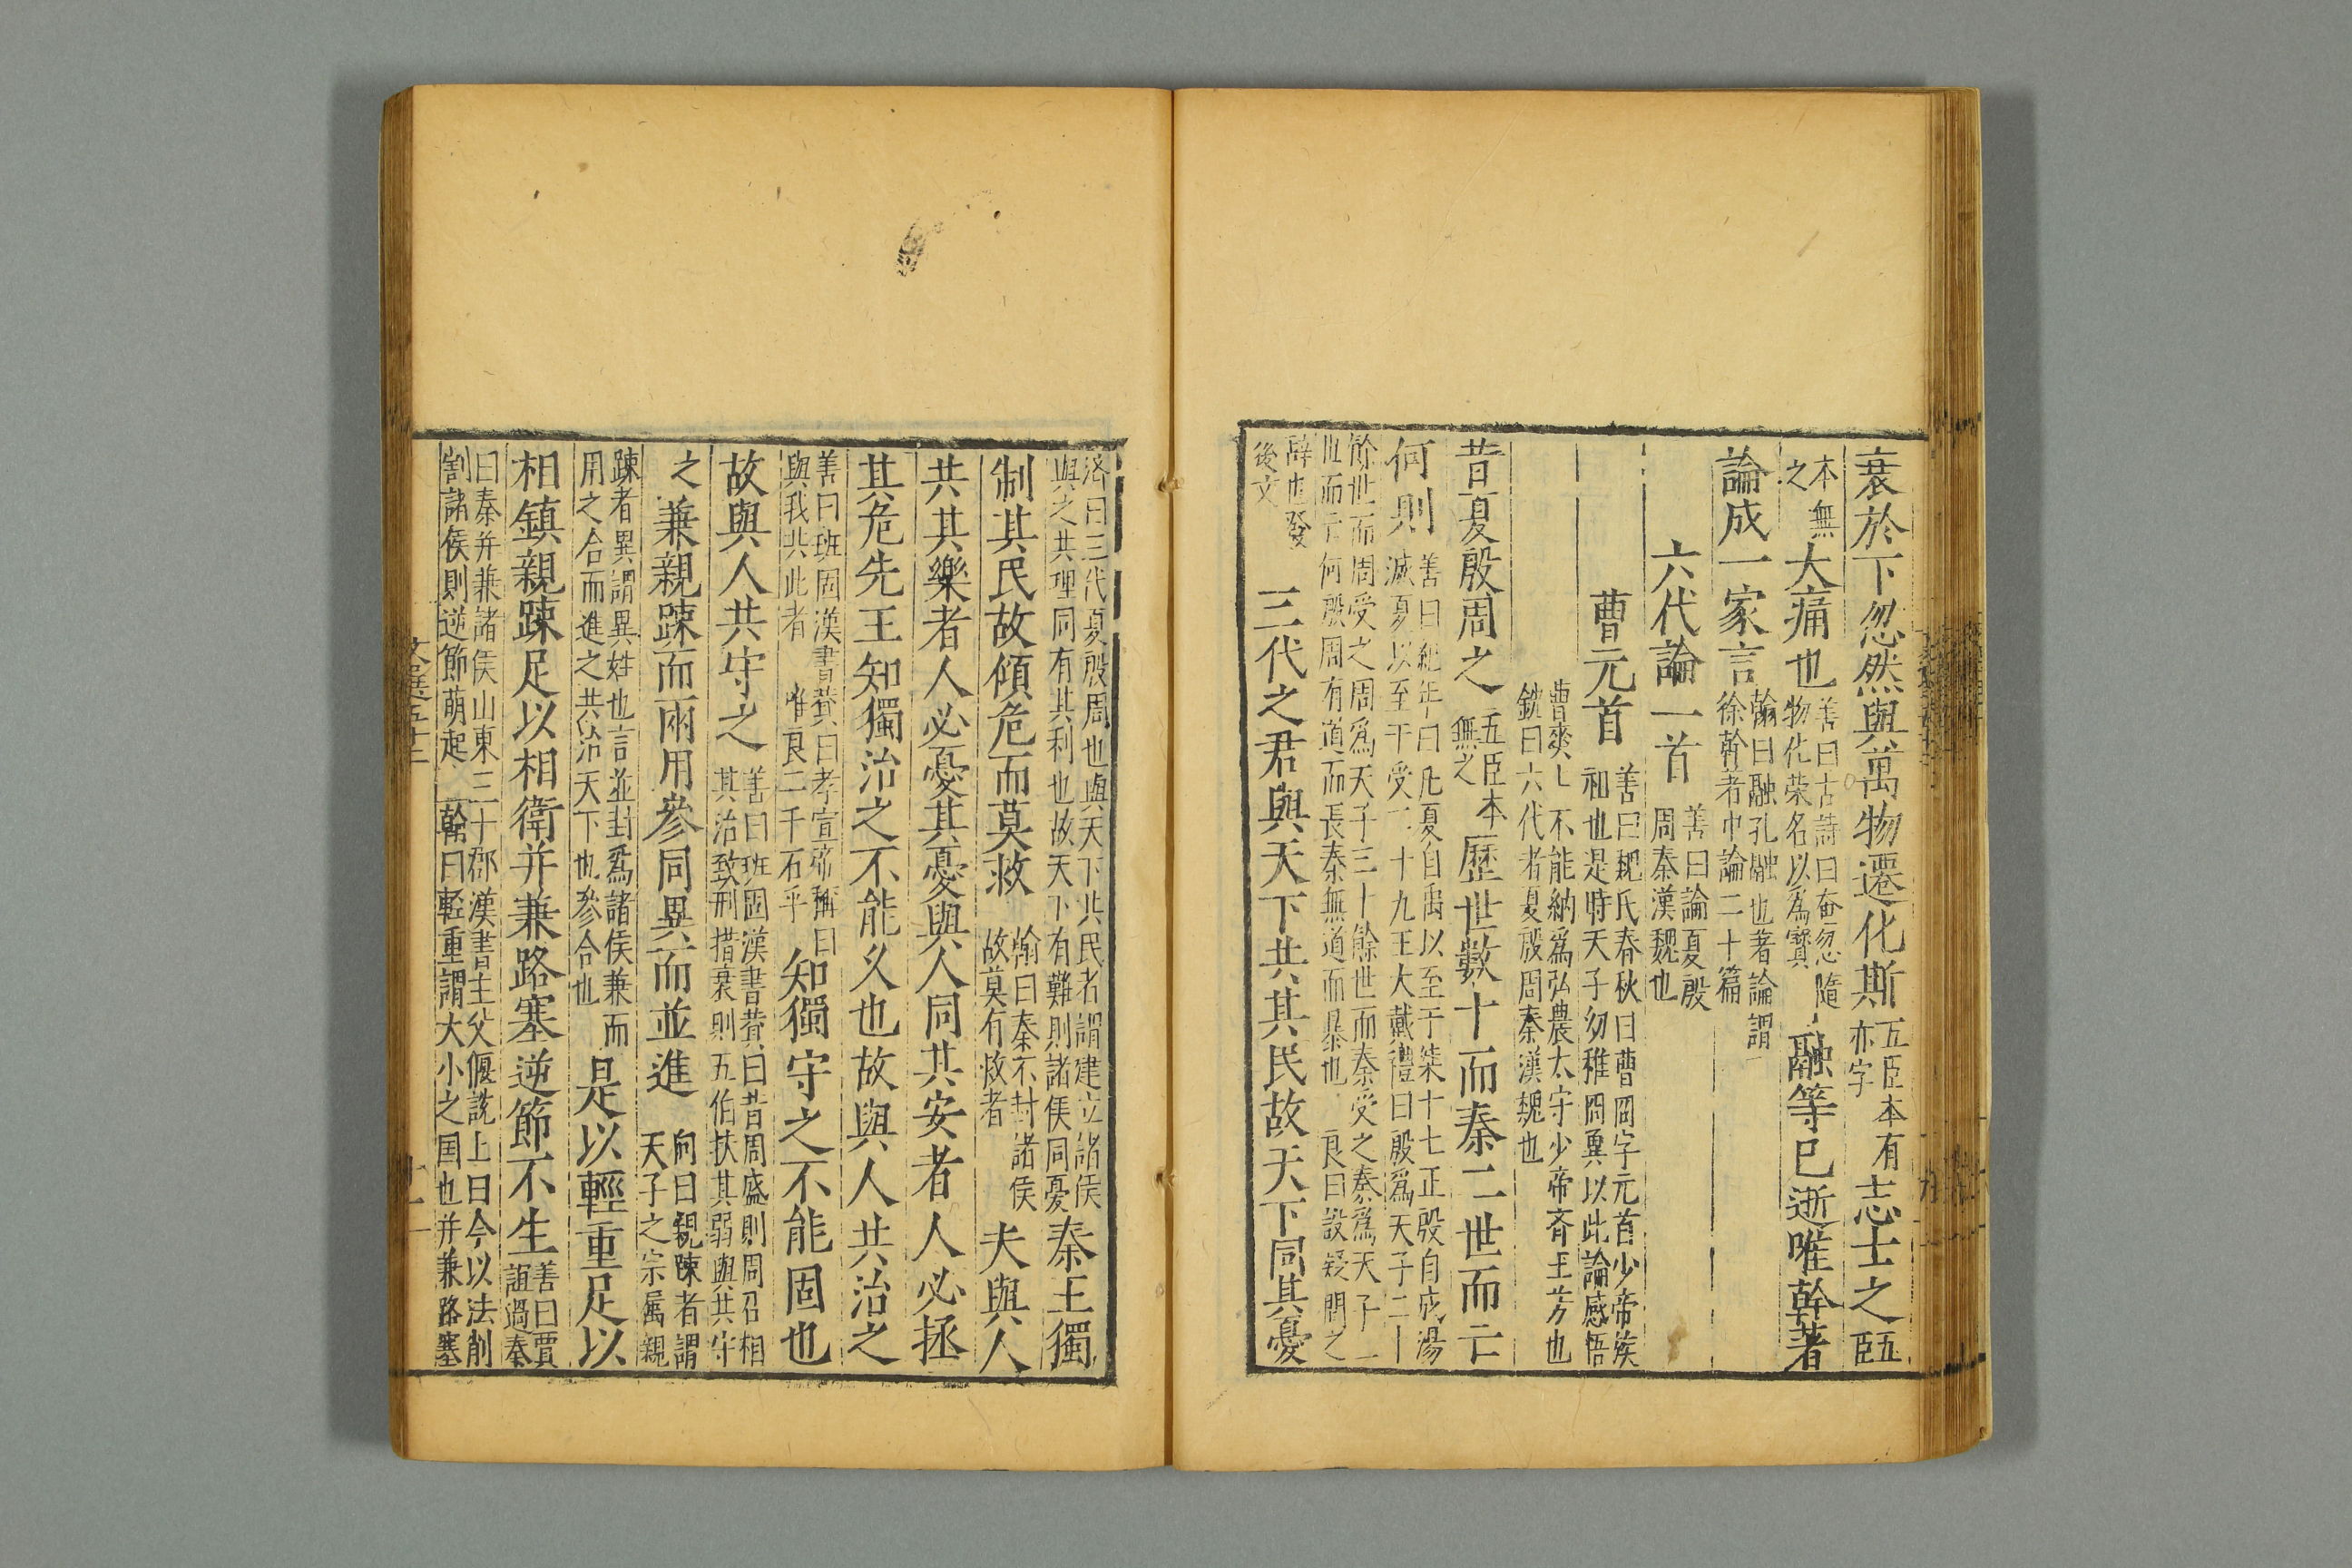 衰於下忽然與萬物遷化斯五臣本有亦字志士之五臣
本無之大痛也善曰古詩曰奄忽隨物化榮名以為寶融等已逝唯幹著
論成一家言翰曰融孔融也著論謂徐幹者中論二十篇
六代論一首善曰論夏殷周秦漢魏也
曹元首善曰魏氏春秋曰曹冏字元首少帝族祖也是時天子幼稚冏冀以此論感悟
曹爽不能納為弘農太守少帝齊王芳也銑曰六代者夏殷周秦漢魏也
昔夏殷周之五臣本無之歷世數十而秦二世而亡
何則善曰紀年曰凡夏自禹以至于桀十七王殷自成湯滅夏以至于受二十九王大戴禮曰殷為天子二十
餘世而周受之周為天子三十餘世而秦受之秦為天子二世而亡何殷周有道而長秦無道而暴也良曰設疑問之
辭也發後文三代之君與天下共其民故天下同其憂
濟曰三代夏殷周也與天下共民者謂建立諸侯與之共理同有其利也故天下有難則諸侯同憂秦王獨
制其民故傾危而莫救翰曰秦不封諸侯故莫有救者夫與人
共其樂者人必憂其憂與人同其安者人必拯
其危先王知獨治之不能久也故與人共治之
善曰班固漢書贊曰孝宣帝稱曰與我共此者唯良二千石乎知獨守之不能固也
故與人共守之善曰班固漢書贊曰昔周盛則周召相其治致刑措衰則五伯扶其弱與共守
之兼親踈而兩用參同異而並進向曰親踈者謂天子之宗屬親
踈者異謂異姓也言並封為諸侯兼而用之合而進之共治天下也參合也是以輕重足以
相鎮親踈足以相衛并兼路塞逆節不生善曰賈誼過秦
曰秦并兼諸侯山東三十郡漢書主父偃說上曰今以法削割諸侯則逆節萌起翰曰輕重謂大小之国也并兼路塞